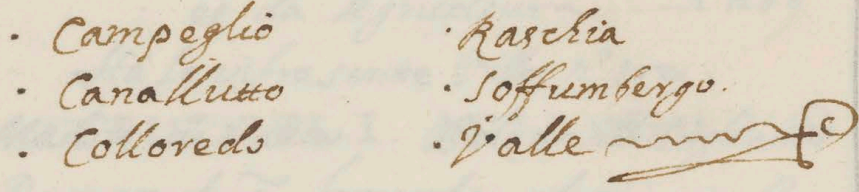 · Campeglio
· Canallutto
· Colloredo
· Raschia
· Soffumbergo.
· Valle